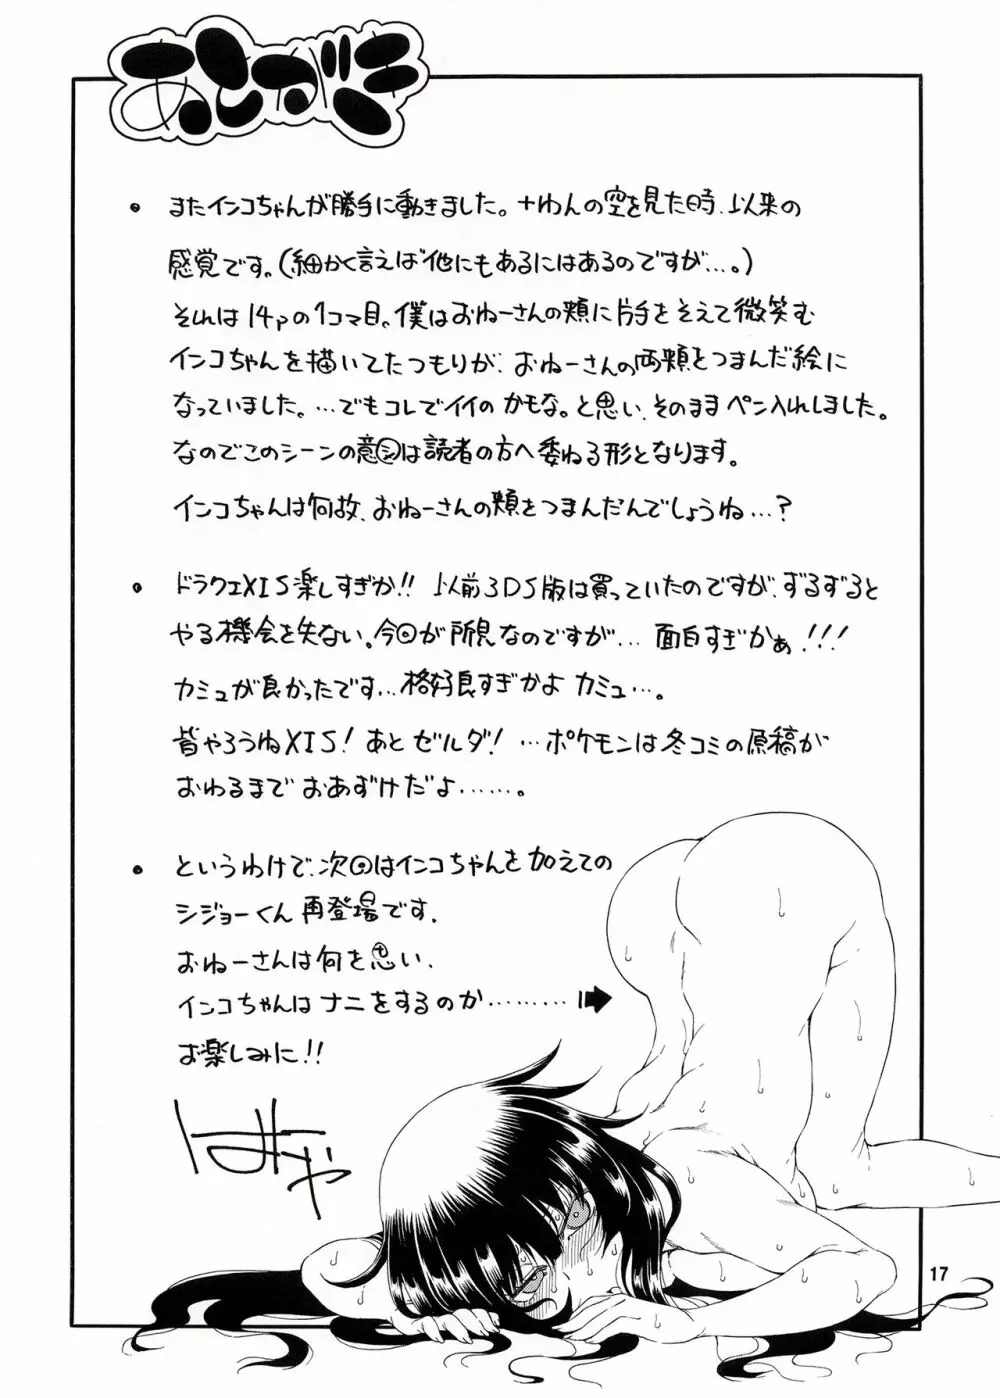 あとがき
・またインコちゃんが勝手に動きました。十わんの空を見た時、以来の
感覚です。(細かく言えば他にもあるにはあるのですが…。)
それは14pの1コマ目。僕はおねーさんの頬に片手をそえて微笑む
インコちゃんを描いてたつもりが、おねーさんの両頬をつまんだ絵に
なっていました。…でもコレでイイのかもな。と思い、そのままペン入れしました。
なのでこのシーンの意図は読者の方へ委ねる形となります。
インコちゃんは何故、おねーさんの頬をつまんだんでしょうね…?
・ドラクエXIS楽しすぎか!! 以前3DS版は買っていたのですが、ずるずると
やる機会を失い。今回が所見なのですが… 面白すぎかぁ!!!
カミュが良かったです…格好良すぎかよカミュ…。
皆やろうねXIS! あとゼルダ! …ポケモンは冬コミの原稿が
おわるまでおあずけだよ……。
・というわけで、次回はインコちゃんを加えての
シジョーくん再登場です。
おねーさんは何を思い、
インコちゃんはナニをするのか………
お楽しみに!!
はみゃ
17